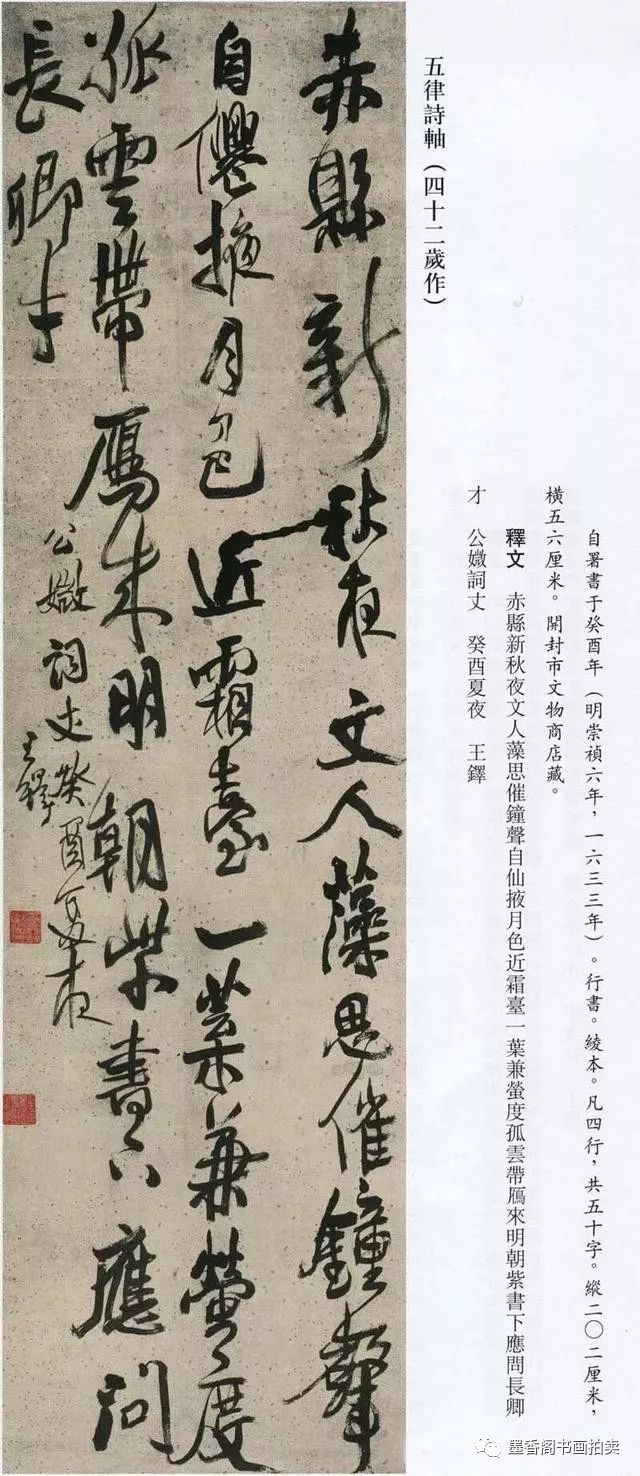 五律詩軸(四十二歲作)
自署書于癸酉年(明崇禎六年,一六三三年)。行書。綾本。凡四行,共五十字。縱二〇二厘米,
橫五六厘米。開封市文物商店藏。
釋文 赤縣新秋夜文人藻思催鐘聲自仙掖月色近霜臺一葉兼螢度孤雲帶鴈來明朝紫書下應問長卿
才 公媺詞丈 癸酉夏夜 王鐸
赤縣新秋夜文人藻思催鐘聲
自僊掖月色近霜臺一葉兼螢度
孤雲帶鴈來明朝紫書下應問
長卿才
公媺詞丈癸酉夏夜
王鐸
墨香阁书画拍卖